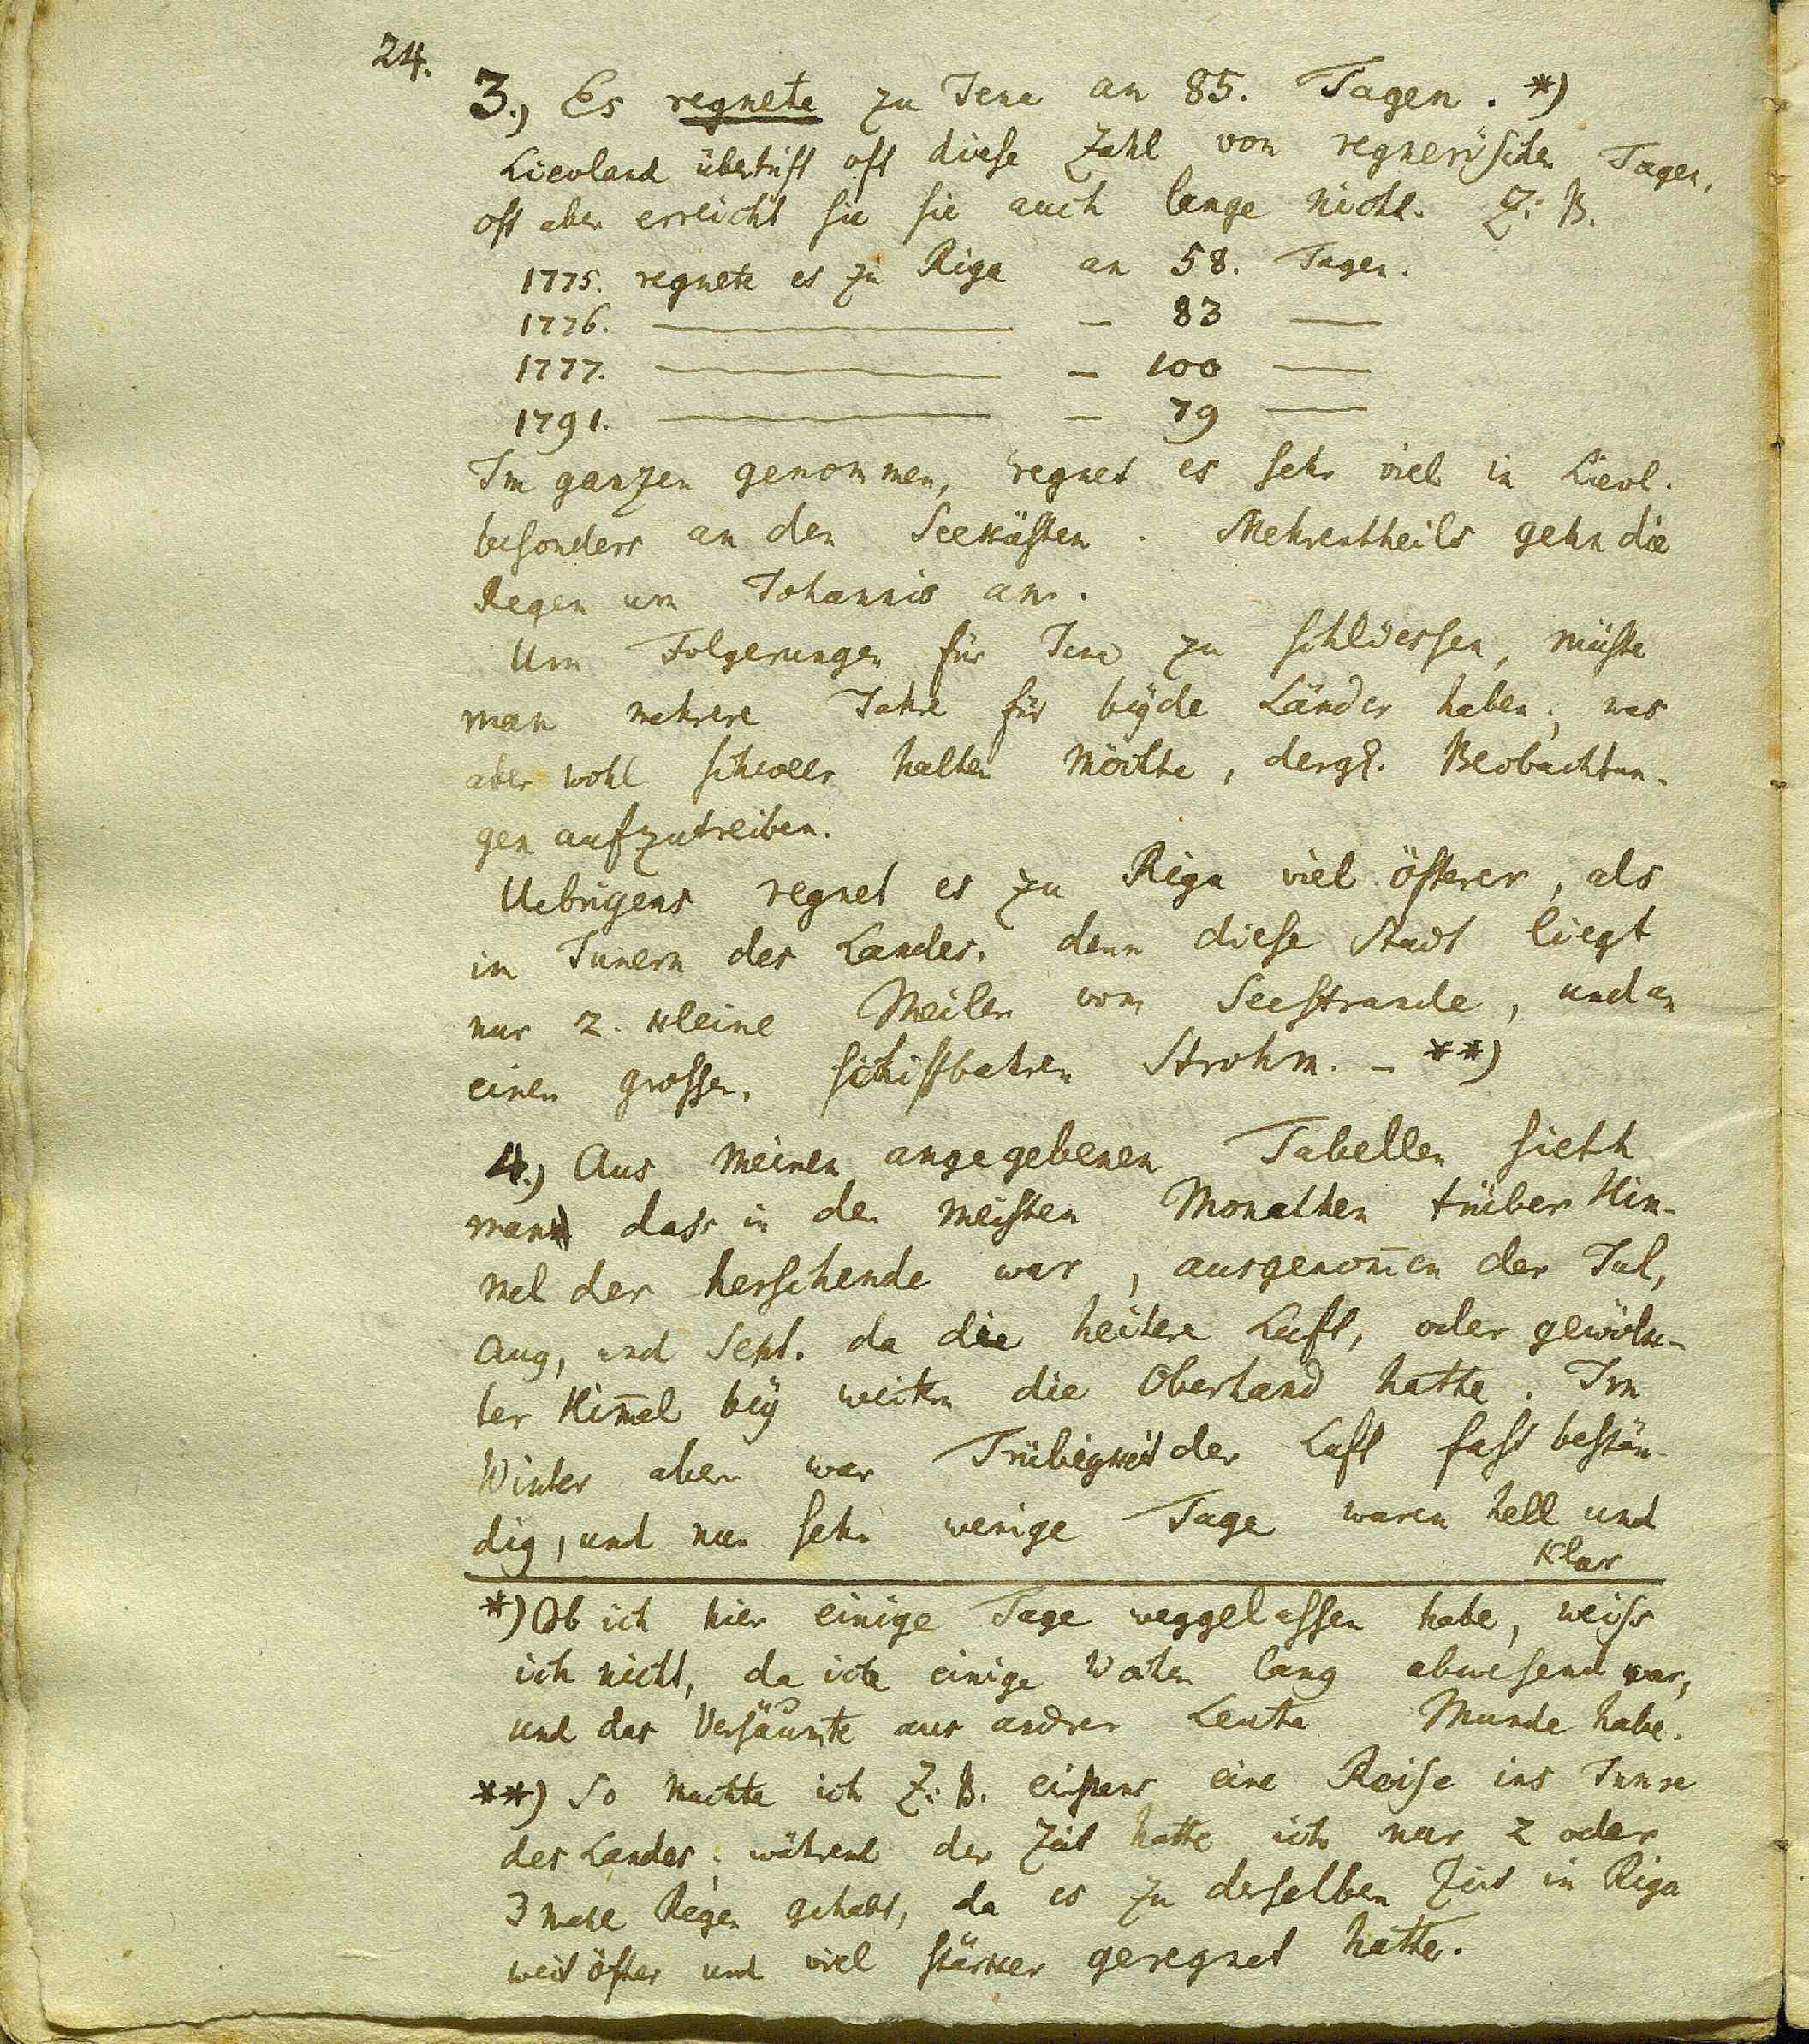 24.
3.) Es regnete zu Jena an 85. Tagen. *)
Lievland übertrift oft diese Zahl von regnerischen Tagen,
oft aber erreicht sie sie auch lange nicht. Z: B.
1775. regnete es zu Riga an 58. Tagen.
1776. ——— – 83 —
1777. ——— – 100 —
1791. ——— – 79 —
Im ganzen genommen, regnet es sehr viel in Lievl.
besonders an den Seeküsten. Mehrentheils gehn die
Regen um Johannis an.
Um Folgerungen für Jena zu schliessen, müste
man mehrere Jahre für beyde Länder haben, was
aber wohl schweer halten möchte, dergl. Beobachtun-
gen aufzutreiben.
Uebrigens regnet es zu Riga viel öfterer, als
im Innern des Landes, denn diese Stadt liegt
nur 2. kleine Meilen vom Seestrande, und an
einen grossen, schiffbahren Strohm. – **)
4.) Aus meinen angegebenen Tabellen sieth
man dass in den meisten Monathen trüber Him-
mel der herschende war, ausgenom̄en der Jul,
Aug, und Sept. da die heitere Luft, oder gewölk-
ter Him̄el bey weiten die Oberhand hatte. Im
Winter aber war Trübigkeit der Luft fast bestän-
dig, und nur sehr wenige Tage waren hell und
klar
*) Ob ich hier einige Tage weggelassen habe, weiss
ich nicht, da ich einige Wochen lang abwesend war,
und das Versäumte aus andrer Leute Munde habe.
**) So machte ich Z: B. einstens eine Reise ins Innre
des Landes, während der Zeit hatte ich nur 2 oder
3 mahl Regen gehabt, da es zu derselben Zeit in Riga
weit öfter und viel stärker geregnet hatte.